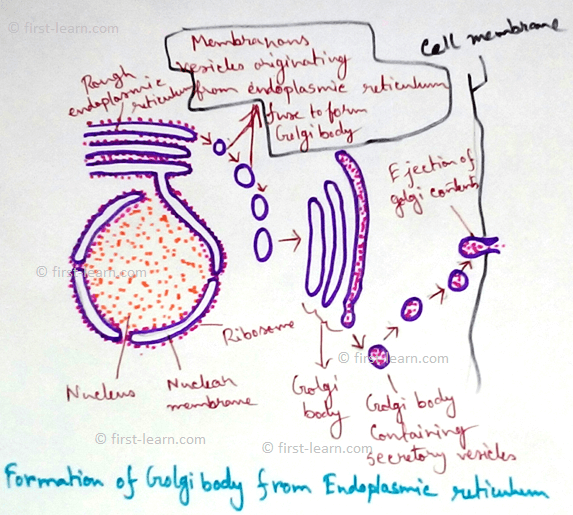 © first-learn.com
Membranous
vesicles originating
from endoplasmic reticulum
fuse to form
Golgi body
Cell membrane
Rough
endoplasmic
reticulum
Ejection of
golgi contents
© first-learn.com
Ribosome
Nucleus
Nuclear
membrane
© first-learn.com
Golgi
body
Golgi body
containing
secretory vesicles
© first-learn.com
© first-learn.com
Formation of Golgi body from Endoplasmic reticulum